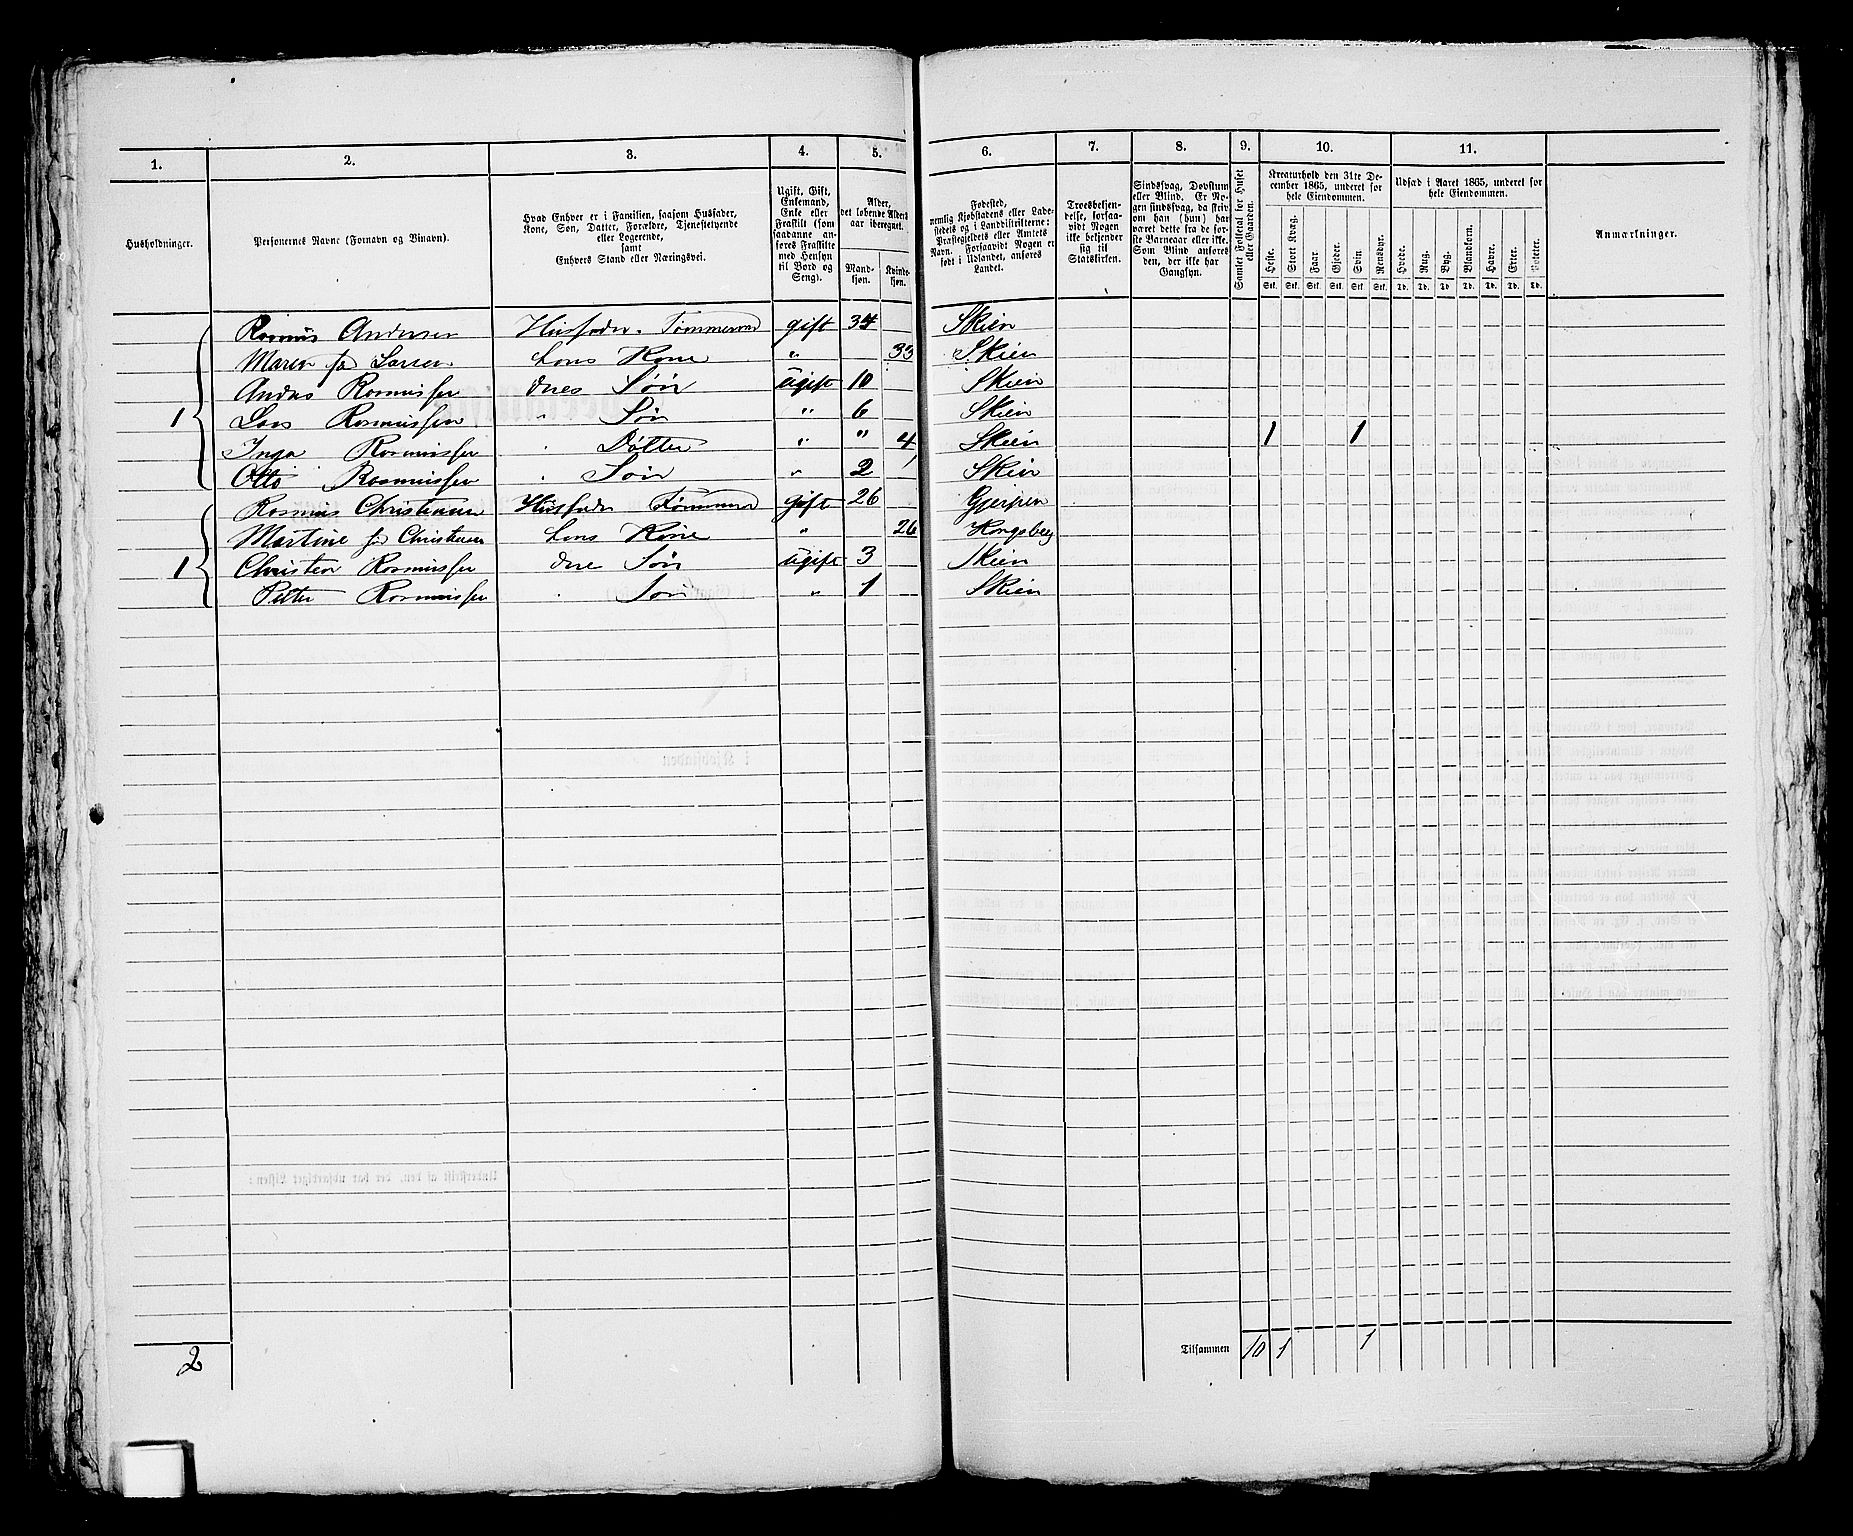 1. 2. 3. 4. 5. 6. 7. 8. 9. 10. 11.
Husholdninger.
Personernes Navne (Fornavn og Binavn).
Hvad Enhver er i Familien, saasom Husfader,
Kone, Søn, Datter, Forældre, Tjenestetyende
eller Logerende,
samt
Enhvers Stand eller Næringsvei.
Ugift, Gift,
Enkemand,
Enke eller
Fraskilt (som
saadanne an-
føres Fraskilte
med Hensyn
til Bord og
Seng).
Alder,
det løbende Alders-
aar iberegnet.
Mand-
kjøn.
Kvinde-
kjøn.
Fødested,
nemlig Kjøbstadens eller Lade-
stedets og i Landdistrikterne:
Præstegjeldets eller Amtets
Navn. Forsaavidt Nogen er
født i Udlandet, anføres
Landet.
Troesbekjen-
delse, forsaa-
vidt Nogen
ikke bekjender
sig til
Statskirken.
Sindssvag, Døvstum
eller Blind. Er No-
gen sindssvag, da skriv
om han (hun) har
været dette fra de før-
ste Barneaar eller ikke.
Som Blind anføres
den, der ikke har
Gangsyn.
Samlet Folketal for Huset
eller Gaarden.
Kreaturhold den 31te De-
cember 1865, underet for
hele Eiendommen.
Heste. Stort Kvæg. Faar. Gjeder. Svin. Rensdyr.
Stk. Stk. Stk. Stk. Stk. Stk.
Udsæd i Aaret 1865, underet for
hele Eiendommen.
Hvede. Rug. Byg. Blandkorn. Havre. Erter. Poteter.
Td. Td. Td. Td. Td. Td. Td.
Anmærkninger.
Rasmus Andersen Husfader. Tømmermd gift 34 Skien
Maren f. Larsen hans Kone " 33 Skien
Anders Rasmussen deres Søn Ugift 10 Skien
1 Lars Rasmussen " Søn " 6 Skien
Inga Rasmussen " Datter " " 4 Skien 1 1
Otto Rasmussen " Søn " 2 Skien
Rasmus Christiansen Husfader Tømmermd Gift 26 Gjerpen
Martine f. Christensen hans Kone " 26 Kongsberg
1 Christian Rasmussen dere Søn Ugift 3 Skien
Petter Rasmussen " Søn " 1 Skien
2
Tilsammen 10 1 1